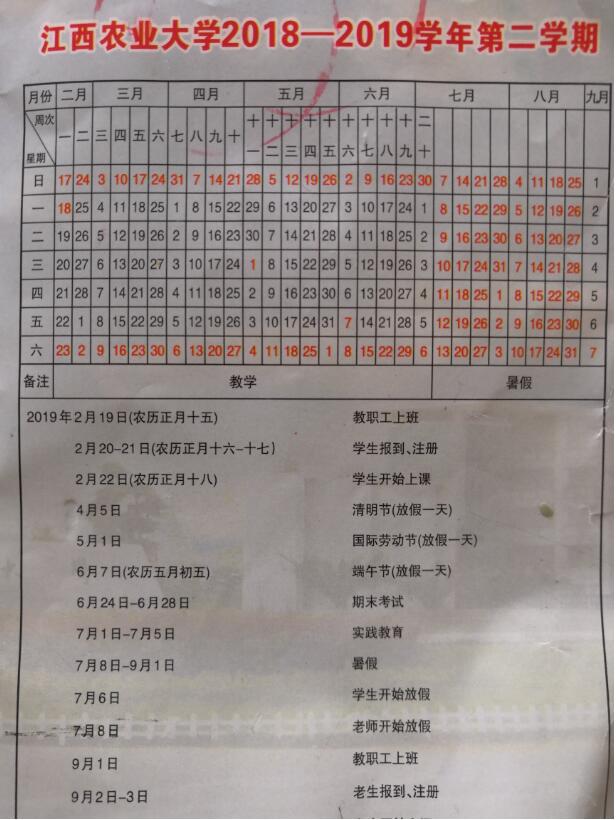 江西农业大学2018—2019学年第二学期
月份 二月 三月 四月 五月 六月 七月 八月 九月
周次 星期 一 二 三 四 五 六 七 八 九 十 十一 十二 十三 十四 十五 十六 十七 十八 十九 二十
日 17 24 3 10 17 24 31 7 14 21 28 5 12 19 26 2 9 16 23 30 7 14 21 28 4 11 18 25 1
一 18 25 4 11 18 25 1 8 15 22 29 6 13 20 27 3 10 17 24 1 8 15 22 29 5 12 19 26 2
二 19 26 5 12 19 26 2 9 16 23 30 7 14 21 28 4 11 18 25 2 9 16 23 30 6 13 20 27 3
三 20 27 6 13 20 27 3 10 17 24 1 8 15 22 29 5 12 19 26 3 10 17 24 31 7 14 21 28 4
四 21 28 7 14 21 28 4 11 18 25 2 9 16 23 30 6 13 20 27 4 11 18 25 1 8 15 22 29 5
五 22 1 8 15 22 29 5 12 19 26 3 10 17 24 31 7 14 21 28 5 12 19 26 2 9 16 23 30 6
六 23 2 9 16 23 30 6 13 20 27 4 11 18 25 1 8 15 22 29 6 13 20 27 3 10 17 24 31 7
备注 教学 暑假
2019年2月19日(农历正月十五) 教职工上班
2月20-21日(农历正月十六-十七) 学生报到、注册
2月22日(农历正月十八) 学生开始上课
4月5日 清明节(放假一天)
5月1日 国际劳动节(放假一天)
6月7日(农历五月初五) 端午节(放假一天)
6月24日-6月28日 期末考试
7月1日-7月5日 实践教育
7月8日-9月1日 暑假
7月6日 学生开始放假
7月8日 老师开始放假
9月1日 教职工上班
9月2日-3日 老生报到、注册